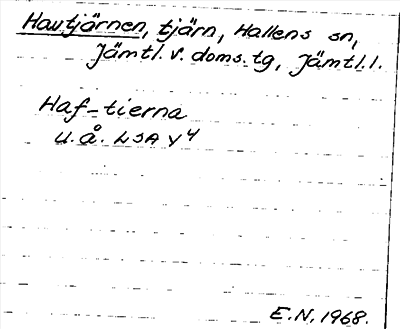 Havtjärnen, tjärn, Hallens sn,
Jämtl. v. doms. tg, Jämtl. l.
Haf-tierna
U. Å. LSA Y4
E.N. 1968.